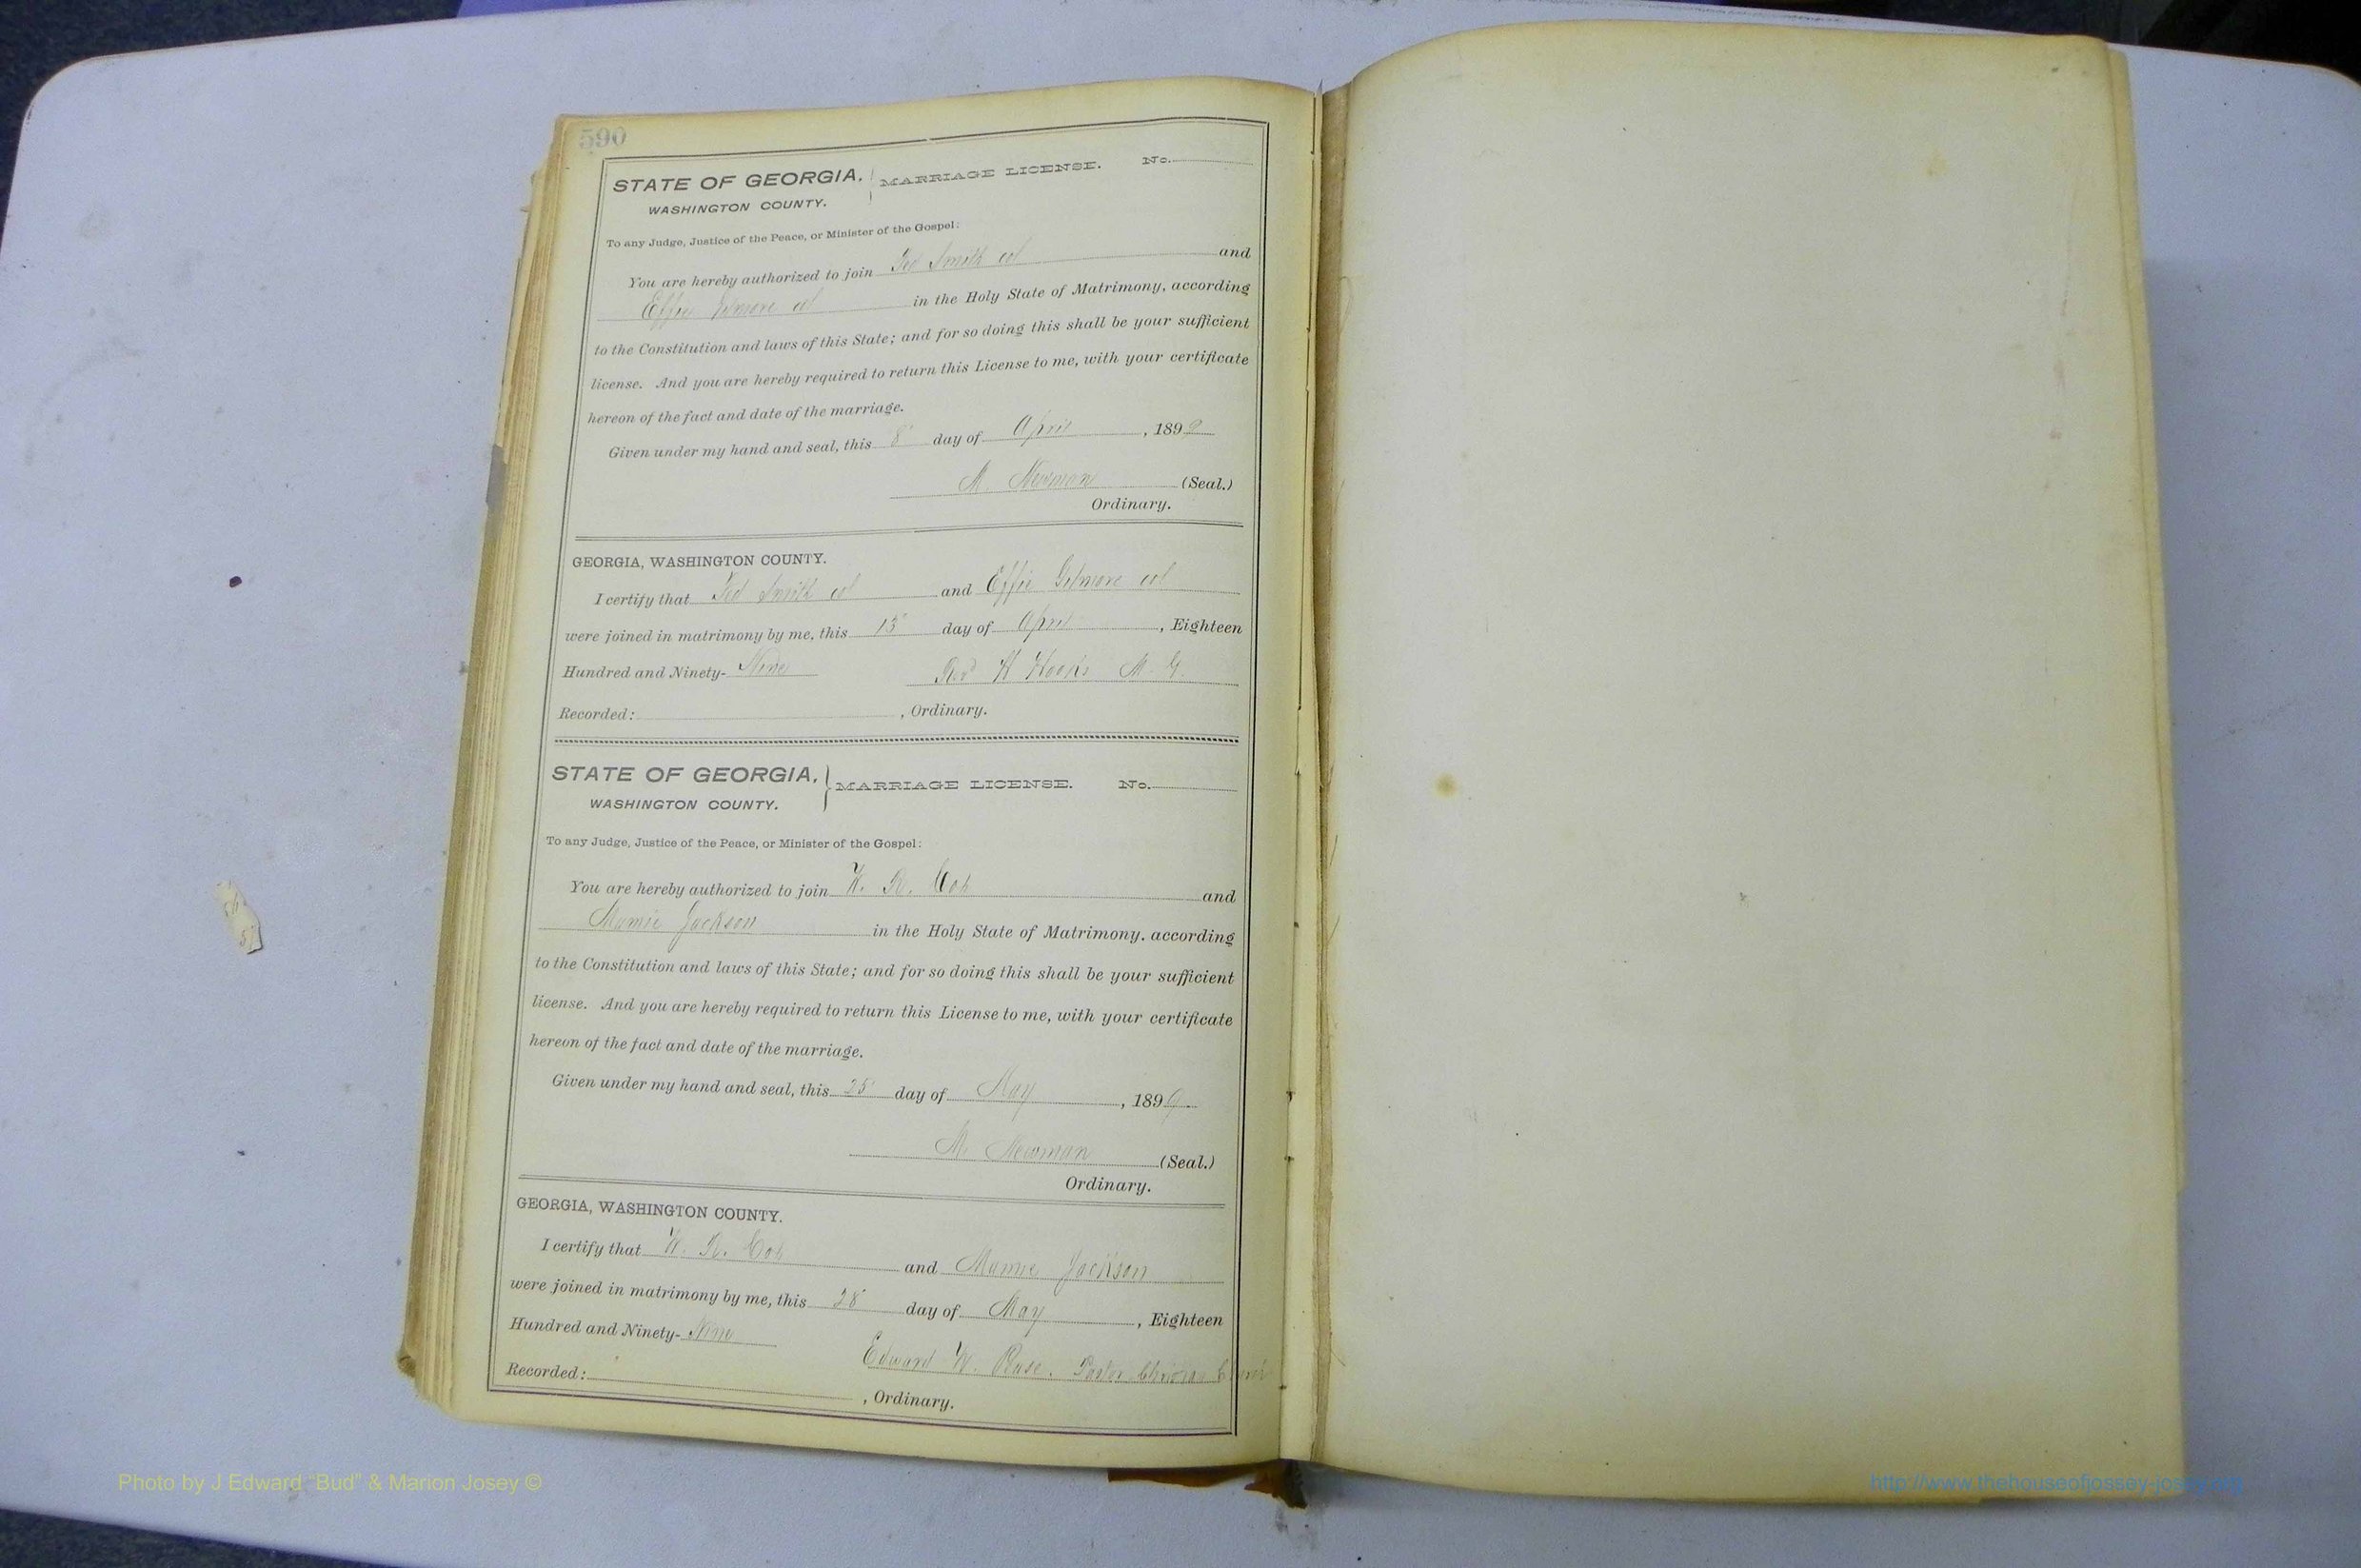 590
STATE OF GEORGIA. MARRIAGE LICENSE. No.
WASHINGTON COUNTY.
To any Judge, Justice of the Peace, or Minister of the Gospel:
You are hereby authorized to join Ted Smith col and
Effie Gilmore col in the Holy State of Matrimony, according
to the Constitution and laws of this State; and for so doing this shall be your sufficient
license. And you are hereby required to return this License to me, with your certificate
hereon of the fact and date of the marriage.
Given under my hand and seal, this 8 day of April, 1899
M. Newman (Seal.)
Ordinary.
GEORGIA, WASHINGTON COUNTY.
I certify that Ted Smith col and Effie Gilmore col
were joined in matrimony by me, this day of April, Eighteen
Hundred and Ninety- Nine Rev H Hooks M. G.
Recorded: , Ordinary.
STATE OF GEORGIA, MARRIAGE LICENSE. No.
WASHINGTON COUNTY.
To any Judge, Justice of the Peace, or Minister of the Gospel:
You are hereby authorized to join R. and
Mamie Jackson in the Holy State of Matrimony. according
to the Constitution and laws of this State; and for so doing this shall be your sufficient
license. And you are hereby required to return this License to me, with your certificate
hereon of the fact and date of the marriage.
Given under my hand and seal, this 25 day of May, 1899
M. Newman (Seal.)
Ordinary.
GEORGIA, WASHINGTON COUNTY.
I certify that R. and Mamie Jackson
were joined in matrimony by me, this 28 day of May, Eighteen
Hundred and Ninety- Nine
Edward Pastor Church
Recorded: , Ordinary.
Photo by J Edward "Bud" & Marion Josey ©
http://www.thehouseofjossey-josey.org